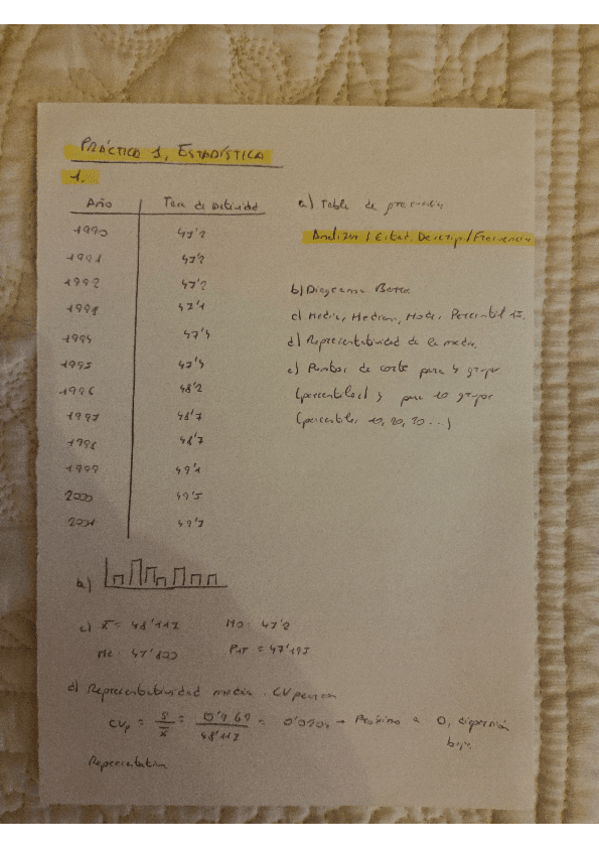 PRÁCTICA 1, ESTADÍSTICA
1.
Año Tasa de actividad
1990 47'2
1991 47'2
1992 47'2
47'1
47'4
1995 47'4
1996 48'2
1997 48'7
48'7
1999 49'1
2000 49'5
2001 49'7
a) Tabla de
Analizar / Estad. Descrip. / Frecuencia
b) Diagrama Barra
c) Media, Mediana, Moda, Percentil 15.
d) Representatividad de la media.
e) Puntos de corte para 4 grupos
y para 10 grupos
(percentiles 10, 20, 30 ...)
b)
c) x̄ = 48'117 Mo: 47'2
Me: 47'800
d) Representatividad media. CV pearson
CVp = S/x̄ = / 48'117 = → Próximo a 0, dispersión
baja.